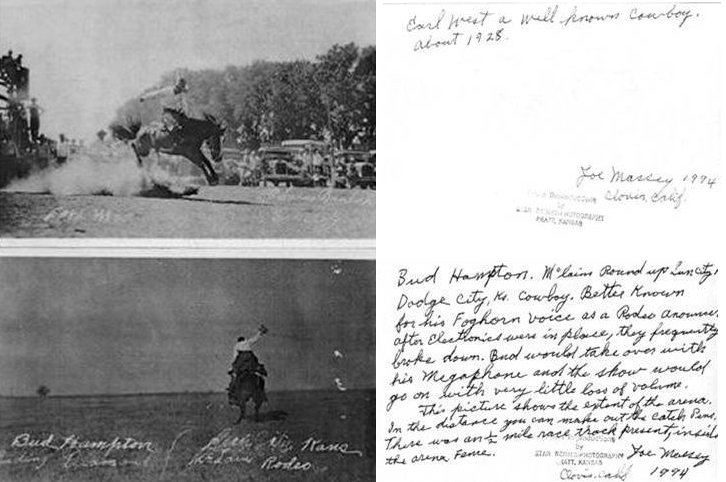 Earl West a well known Cowboy.
about 1928.
Joe Massey 1994
Clovis, Calif.
PRATT, KANSAS
Bud Hampton. McLains Round up Sun City,
Dodge City, Ks. Cowboy. Better Known
for his Foghorn voice as a Rodeo Announcer.
after Electronics were in place, they frequently
broke down. Bud would take over with
his Megaphone and the show would
go on with very little loss of volume.
This picture shows the extent of the arena.
In the distance you can make out the Catch Pens,
There was an ½ mile race track present, inside
the arena Fence.
Joe Massey
STAR PHOTOGRAPHY
PRATT, KANSAS
Clovis, Calif
1994
Bud Hampton
Kans
Rodeo